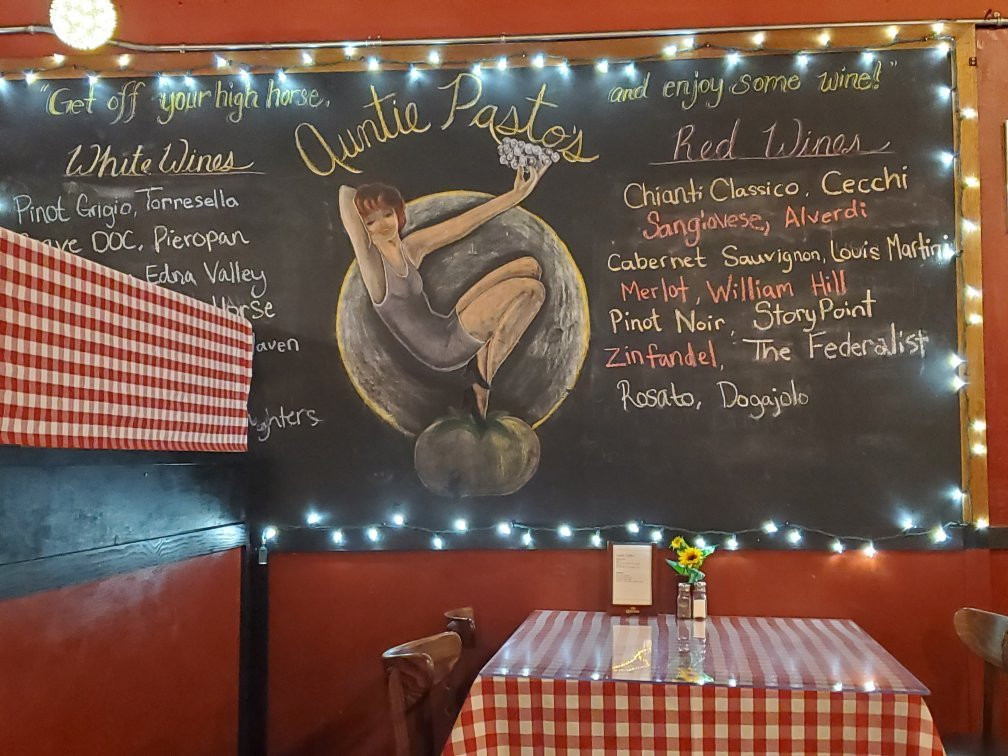 "Get off your high horse,
and enjoy some wine!"
Auntie Pasto's
White Wines
Pinot Grigio, Torresella
DOC, Pieropan
Edna Valley
Horse
aven
ghters
Red Wines
Chianti Classico, Cecchi
Sangiovese, Alverdi
Cabernet Sauvignon, Louis Martini
Merlot, William Hill
Pinot Noir, StoryPoint
Zinfandel, The Federalist
Rosato, Dogajolo